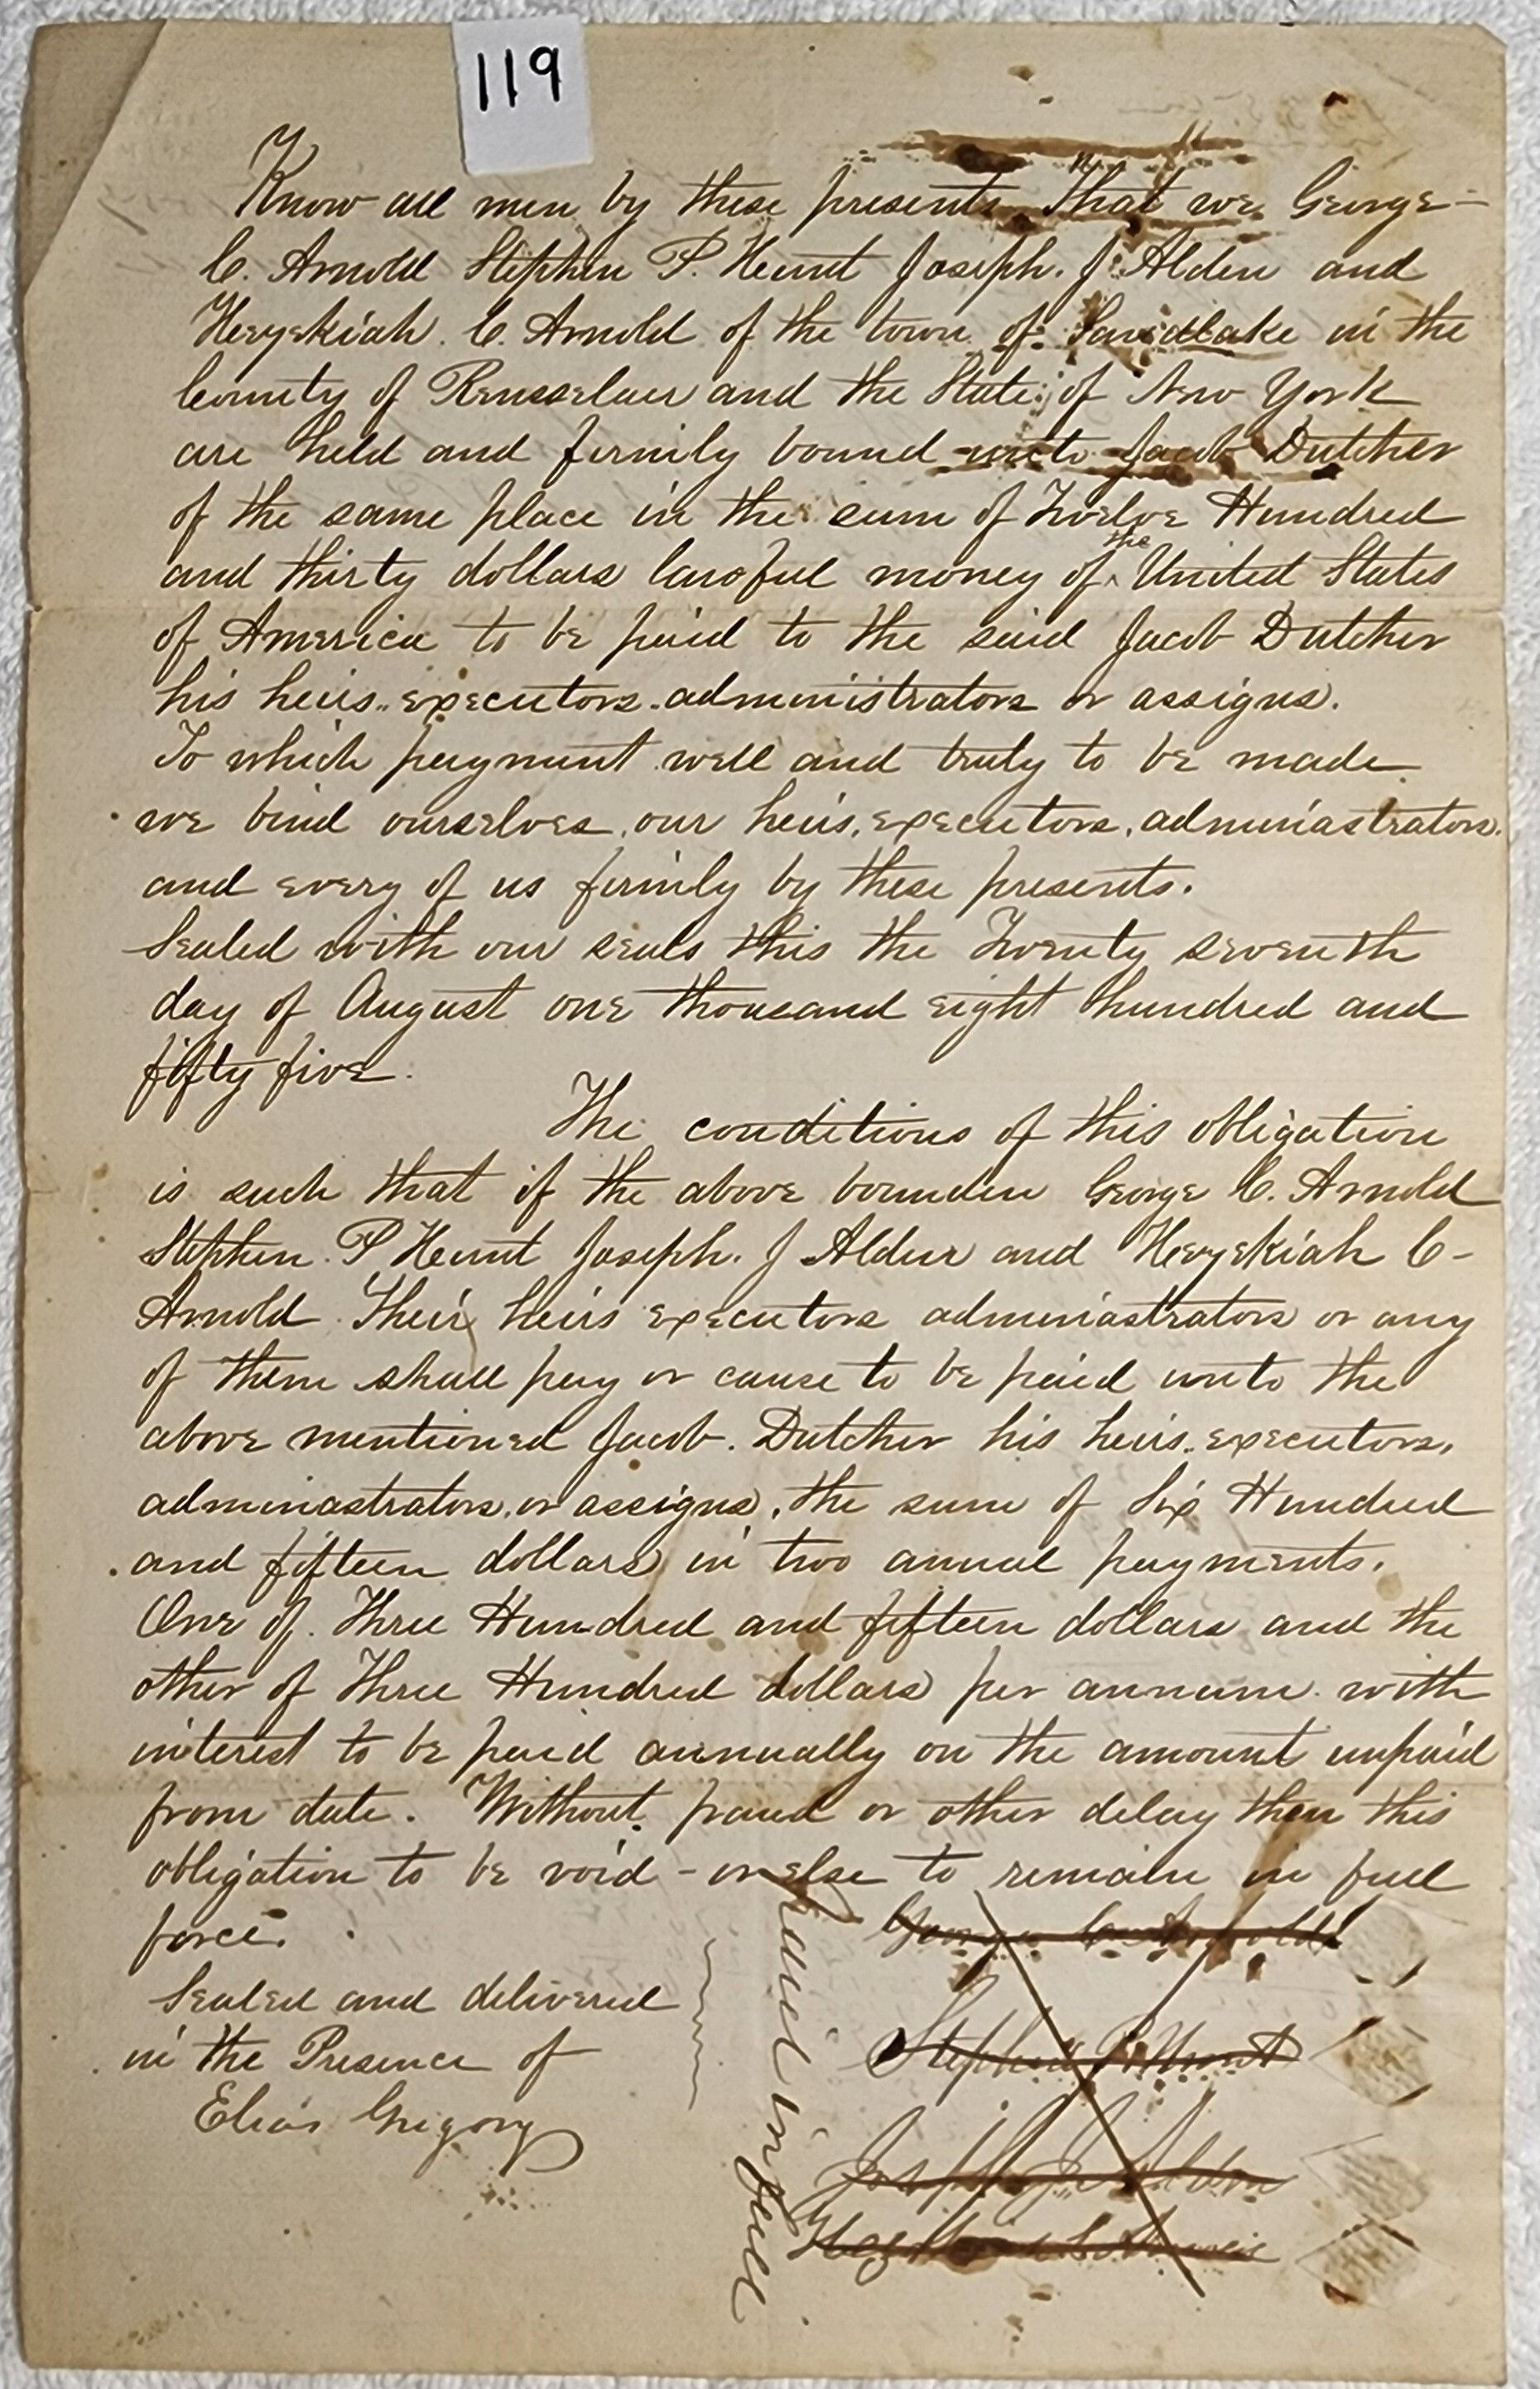 119
Know all men by these presents That we George
C. Arnold Stephen P. Hunt Joseph. J. Alden and
Hezekiah. C. Arnold of the town of Sandlake in the
County of Rensselaer and the State of New York
are held and firmly bound unto Jacob Dutcher
of the same place in the sum of Twelve Hundred
and thirty dollars lawful money of the United States
of America to be paid to the said Jacob Dutcher
his heirs.. executors. administrators or assigns.
To which payment well and truly to be made
we bind ourselves, our heirs, executors, adminiastrators.
and every of us firmly by these presents.
Sealed with our seals this the Twenty seventh
day of August one thousand eight hundred and
fifty five.
The conditions of this obligation
is such that if the above bounden George C. Arnold
Stephen. P Hunt Joseph. J Alden and Hezekiah C-
Arnold Their heirs executors adminiastrators or any
of them shall pay or cause to be paid unto the
above mentioned Jacob. Dutcher his heirs.. executors,
adminiastrators, or assigns, the sum of Six Hundred
and fifteen dollars in two annual payments.
One of. Three Hundred and fifteen dollars and the
other of Three Hundred dollars per annum. with
interest to be paid annually on the amount unpaid
from date. Without. fraud or other delay then this
obligation to be void - or else to remain in full
force.
Sealed and delivered
in the Presence of
Elias Gregory
George C. Arnold
Stephen P. Hunt
Joseph J. Alden
Hezekiah C. Arnold
in full